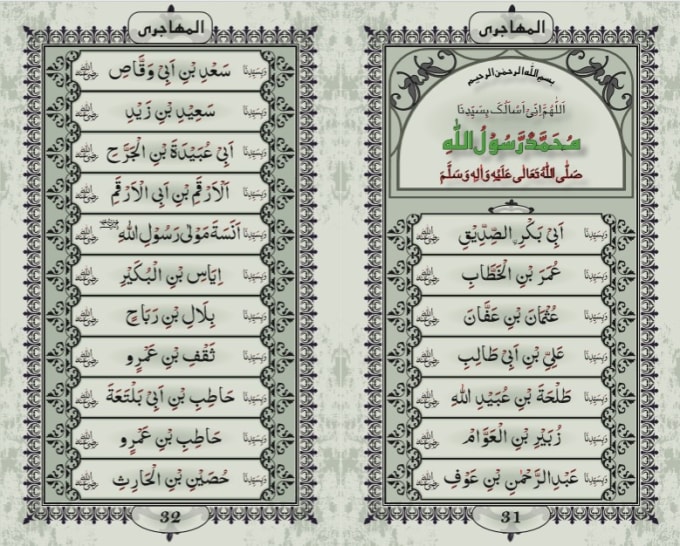 المهاجرى
بسم الله الرحمن الرحيم
اَللّٰهُمَّ اِنِّیْ اَسْاَلُکَ بِسَیِّدِنَا
مُحَمَّدٌ رَّسُوْلُ اللّٰهِ
صَلَّی اللّٰهُ تَعَالٰی عَلَیْهِ وَاٰلِهٖ وَسَلَّمَ
وَبِسَیِّدِنَا اَبِیْ بَکْرِ الصِّدِّیْقِ رضی الله عنه
وَبِسَیِّدِنَا عُمَرَ بْنِ الْخَطَّابِ رضی الله عنه
وَبِسَیِّدِنَا عُثْمَانَ بْنِ عَفَّانَ رضی الله عنه
وَبِسَیِّدِنَا عَلِیِّ بْنِ اَبِیْ طَالِبِ رضی الله عنه
وَبِسَیِّدِنَا طَلْحَةَ بْنِ عُبَیْدِ اللّٰهِ رضی الله عنه
وَبِسَیِّدِنَا زُبَیْرِ بْنِ الْعَوَّامْ رضی الله عنه
وَبِسَیِّدِنَا عَبْدِ الرَّحْمٰنِ بْنِ عَوْفِ رضی الله عنه
31
المهاجرى
وَبِسَیِّدِنَا سَعْدِ بْنِ اَبِیْ وَقَّاصِ رضی الله عنه
وَبِسَیِّدِنَا سَعِیْدِ بْنِ زَیْدِ رضی الله عنه
وَبِسَیِّدِنَا اَبِیْ عُبَیْدَةَ بْنِ الْجَرَّحِ رضی الله عنه
وَبِسَیِّدِنَا اَلْاَرْقَمِ بْنِ اَبِی الْاَرْقَمِ رضی الله عنه
وَبِسَیِّدِنَا اَنَسَةَ مَوْلٰی رَسُوْلِ اللّٰهِ
وَبِسَیِّدِنَا اِیَاسِ بْنِ الْبُکَیْرِ رضی الله عنه
وَبِسَیِّدِنَا بِلَالِ بْنِ رَبَاحٍ رضی الله عنه
وَبِسَیِّدِنَا ثَقْفِ بْنِ عَمْرٍو رضی الله عنه
وَبِسَیِّدِنَا حَاطِبِ بْنِ اَبِیْ بَلْتَعَةَ رضی الله عنه
وَبِسَیِّدِنَا حَاطِبِ بْنِ عَمْرٍو رضی الله عنه
وَبِسَیِّدِنَا حُصَیْنِ بْنِ الْحَارِثِ رضی الله عنه
32